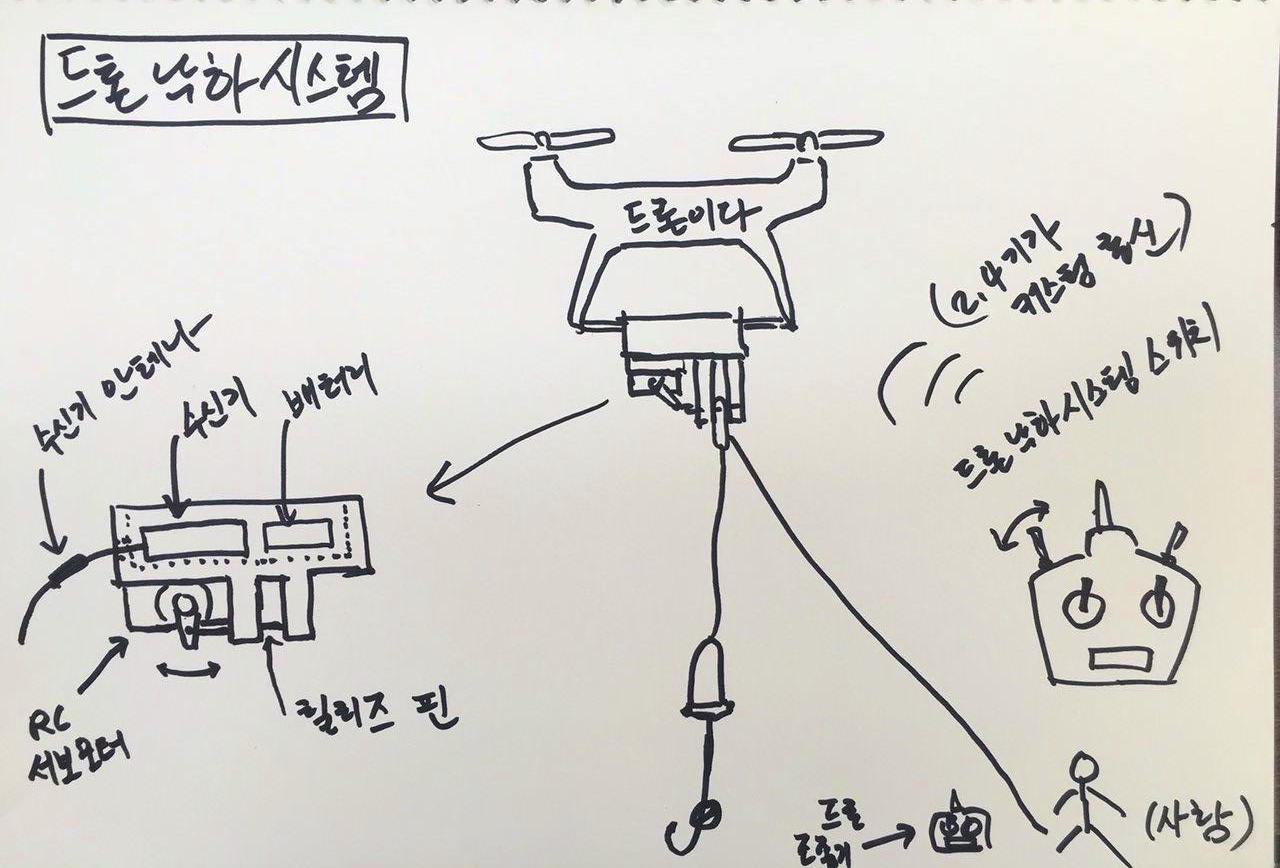 드론 낙하시스템
드론이다
(2.4기가
커스텀 통신)
드론 낙하시스템 스위치
수신기 안테나
수신기
배터리
RC
서보모터
릴리즈 핀
드론
조종기
(사람)